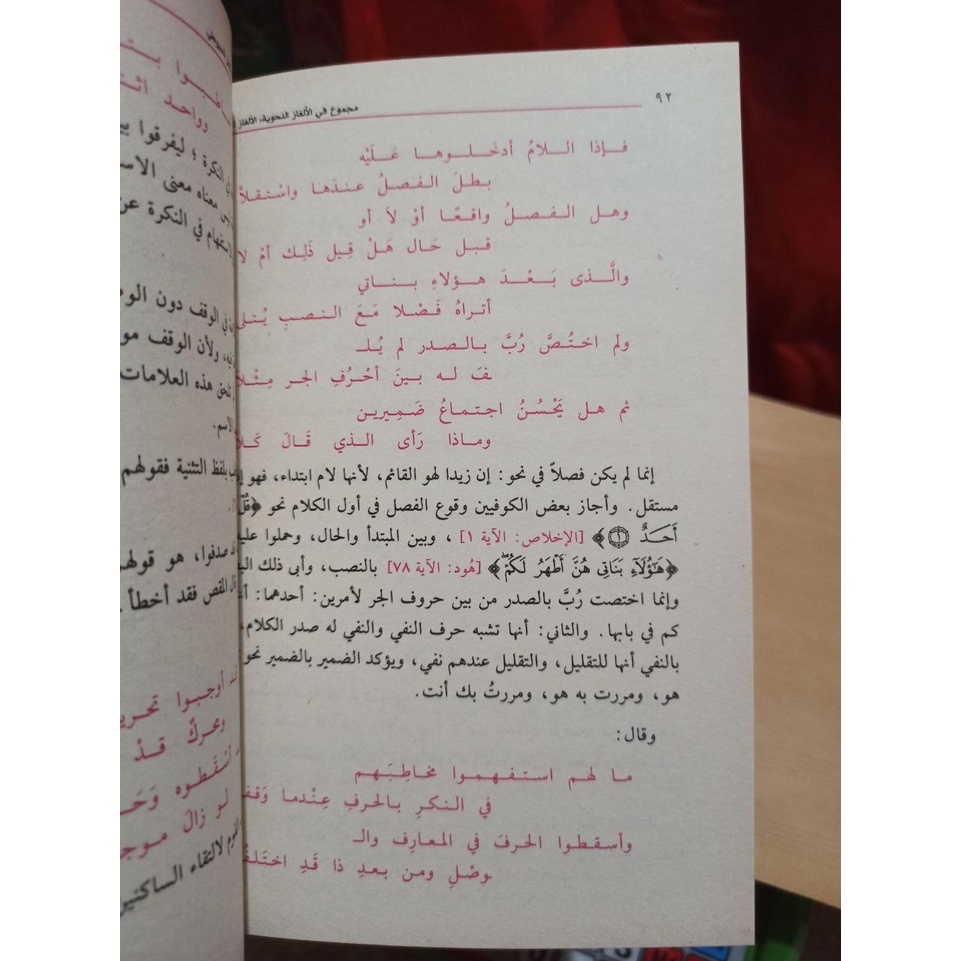 ٩٢
مجموع في الألغاز النحوية، الألغاز
فـإذا الـلامُ أدخَـلـوهـا عَـلَيْه
بـطلَ الـفصلُ عـندَها واسْـتقـلاَّ
وهـل الـفـصـلُ واقـعًـا أوْ لاَ أو
قـبـل حَـال هَـلْ قِيل ذَلِـك أمْ لا
والَّـذى بَـعْـدَ هـؤلاءِ بـنـاتي
أتـراهُ فَـصْـلا مَـعَ الـنـصبِ يُـتلى
ولم اخـتُـصَّ رُبَّ بـالـصدر لم يُـلـ
ـفَ لـه بـينَ أحْـرُفِ الجـر مِـثْـلا
ثم هـل يَحْسُـنُ اجتمـاعُ ضَمِيـرين
ومـاذا رَأى الـذي قَـالَ كَـلاَّ
إنما لم يكن فصلاً في نحو: إن زيدا لهو القائم، لأنها لام ابتداء، فهو إذ
مستقل. وأجاز بعض الكوفيين وقوع الفصل في أول الكلام نحو ﴿قُلْ
أَحَدٌ ۝١﴾ [الإخلاص: الآية ١] ، وبين المبتدأ والحال، وحملوا عليه
﴿هَٰٓؤُلَآءِ بَنَاتِى هُنَّ أَطْهَرُ لَكُمْ﴾ [هُود: الآية ٧٨] بالنصب، وأبى ذلك
وإنما اختصت رُبَّ بالصدر من بين حروف الجر لأمرين: أحدهما:
كم في بابها. والثاني: أنها تشبه حرف النفي والنفي له صدر الكلام،
بالنفي أنها للتقليل، والتقليل عندهم نفي، ويؤكد الضمير بالضمير نحو
هو، ومررت به هو، ومررتُ بك أنت.
وقال:
مـا لـهـم اسـتـفـهـمـوا مخـاطِـبَـهـم
في الـنكـرِ بـالحَـرفِ عِـنْدما وَقفـ
وأسـقـطـوا الحَـرفَ في المـعـارِف والـ
ـوصْـلِ ومـن بـعـدِ ذا قَـدِ اخـتَـلَفُـ
ووا‌حـد
النكرة ؛ ليفرقوا
معناه معنى
في النكرة
في الوقف دون
ولأن الوقف
هذه العلامات
بلفظ التثنية فقولهم
صدفوا، هو قولهم
فقد أخطأ
أوجبـوا
قَـدْ
لو زالَ
لالتقاء الساكنين